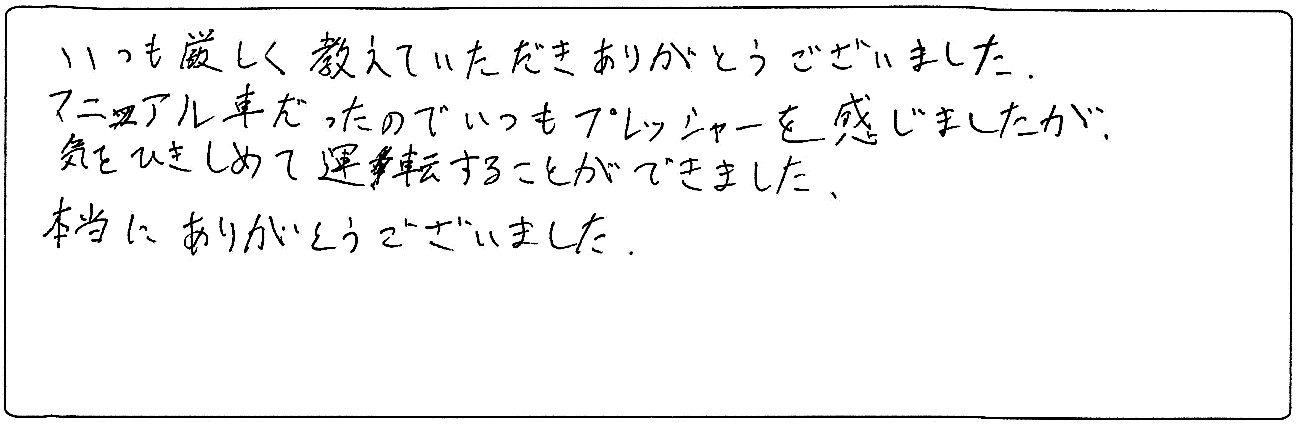 いつも厳しく教えていただきありがとうございました.
マニュアル車だったのでいつもプレッシャーを感じましたが、
気をひきしめて運転することができました、
本当にありがとうございました.